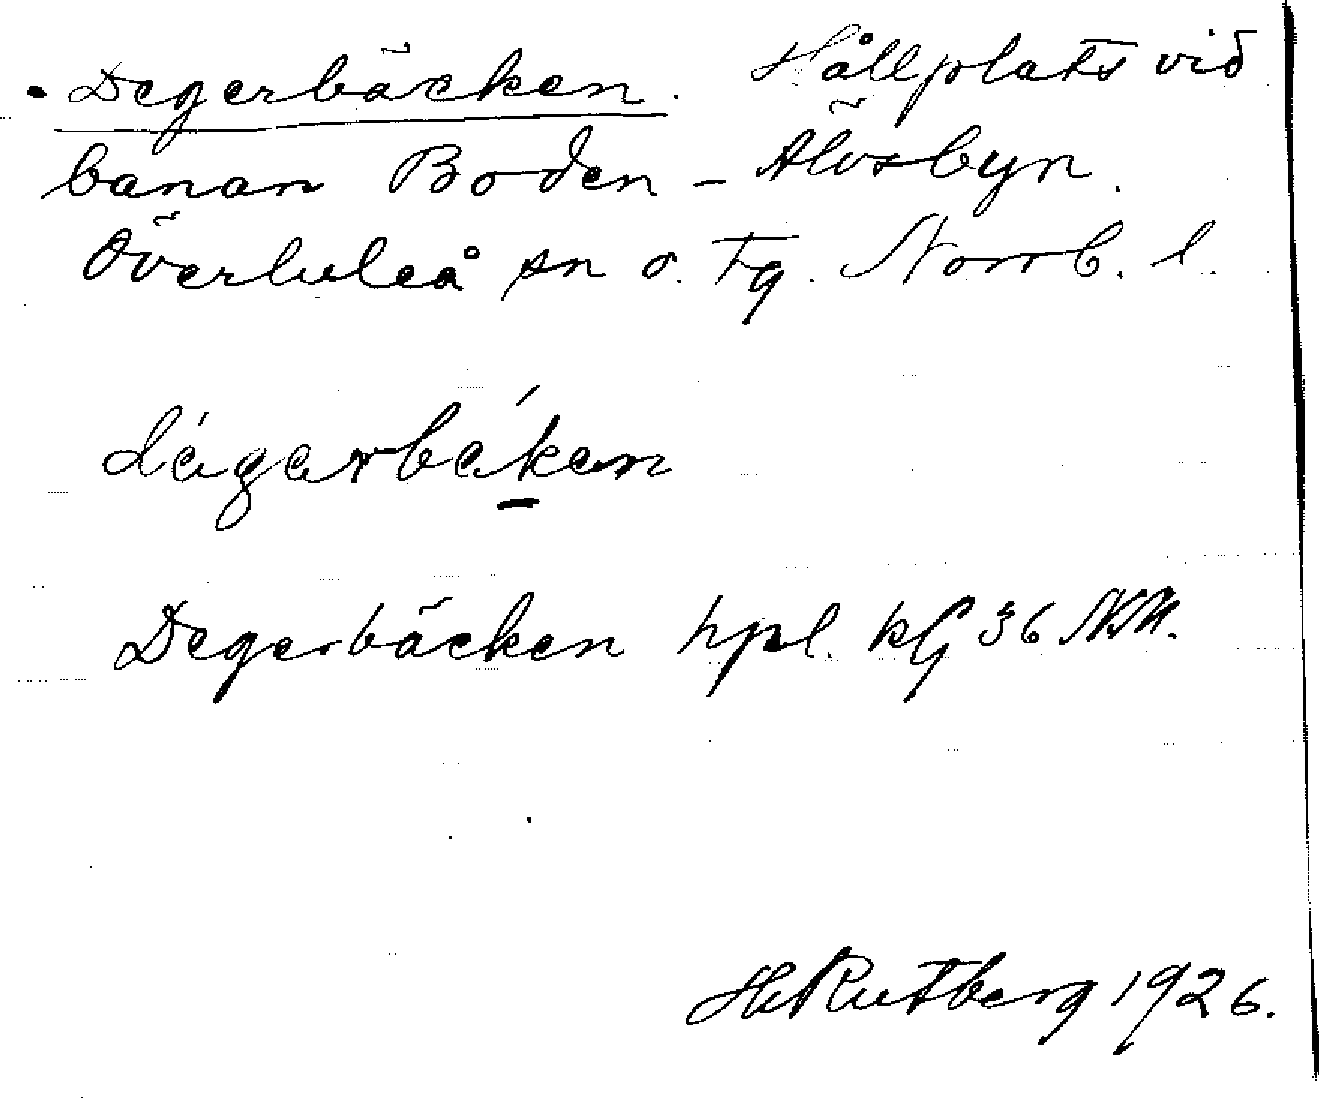 Degerbäcken. Hållplats vid
banan Boden - Älvsbyn.
Överluleå sn o. tg. Norrb. l.
dé̀garbäḱan
Degerbäcken hpl. kG 36 NV.
H. Rutberg 1926.